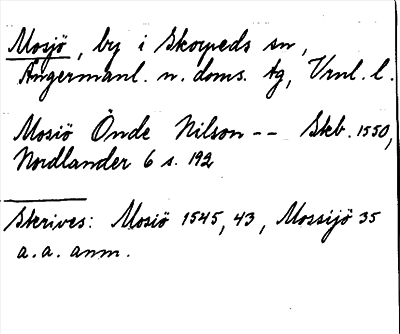 Mosjö, by i Skorpeds sn,
Ångermanl. n. doms. tg, Vrnl. l.
Mosiö Önde Nilson -- Skb. 1550,
Nordlander 6 s. 192
Skrives: Mosiö 1545, 43, Mossijö 35
a. a. anm.